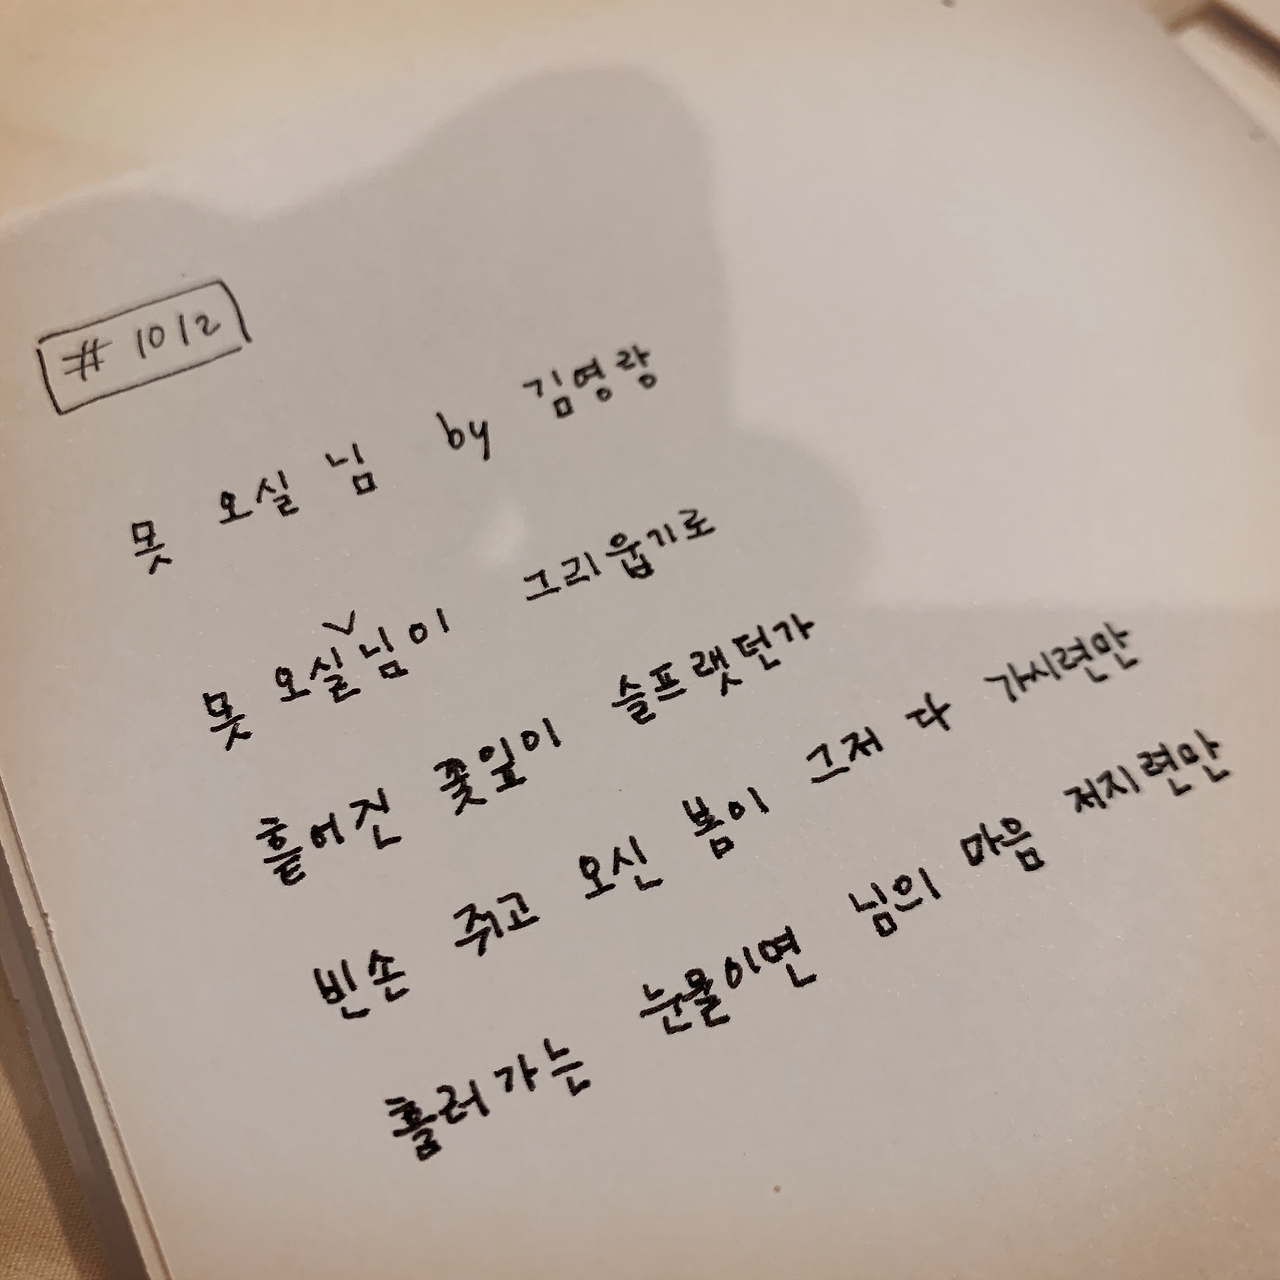 # 1012
못 오실 님 by 김영랑
못 오실∨님이 그리웁기로
흩어진 꽃잎이 슬프랫던가
빈손 쥐고 오신 봄이 그저 다 가시련만
흘러가는 눈물이면 님의 마음 저지련만